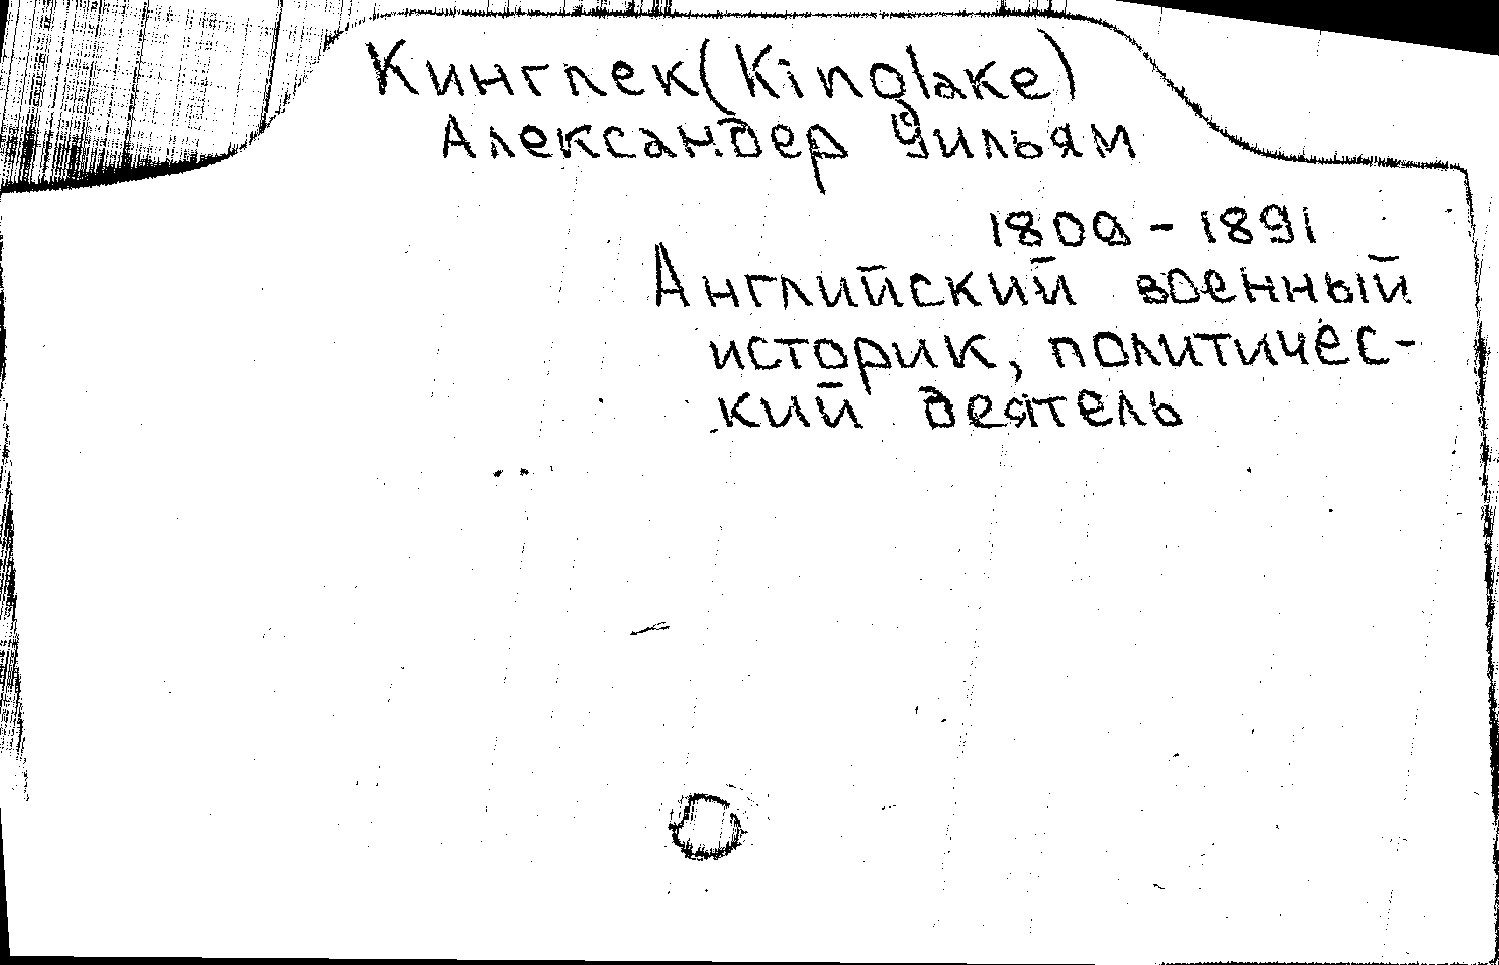 Кинглек (Kinglake)
Александер Уильям
1809 - 1891
Английский военный
историк, политичес-
кий деятель